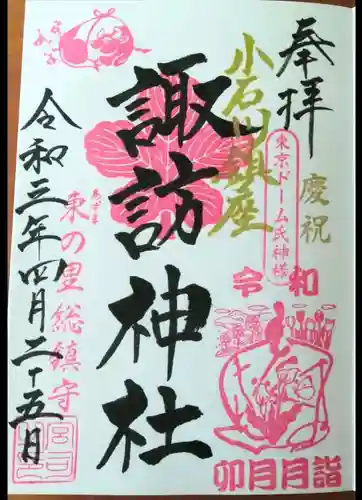 奉拝
慶祝
東京ドーム氏神様
令和
卯月月詣
小石川鎮座
諏訪神社
東の里総鎮守
宮司
令和三年四月二十五日